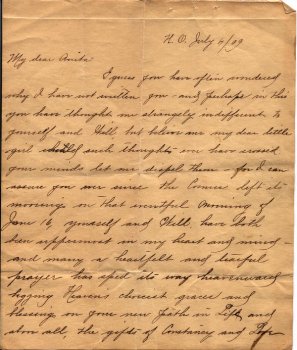 H. O. July 6/09
My dear Anita
I guess you have often wondered
why I have not written you - and perhaps in this
you have thought me strangely indifferent to
yourself and Will, but believe me my dear little
girl such thoughts won have crossed
your minds let me dispel them - for I can
assure you ever since the Comus left its
moorings on that eventful morning of
June 16, yourself and Will have both
been uppermost in my heart and mind -
and many a heartfelt and tearful
prayer has sped its way heavenward
begging Heavens choicest graces and
blessing on your new path in Life and
above all, the gifts of Constancy and